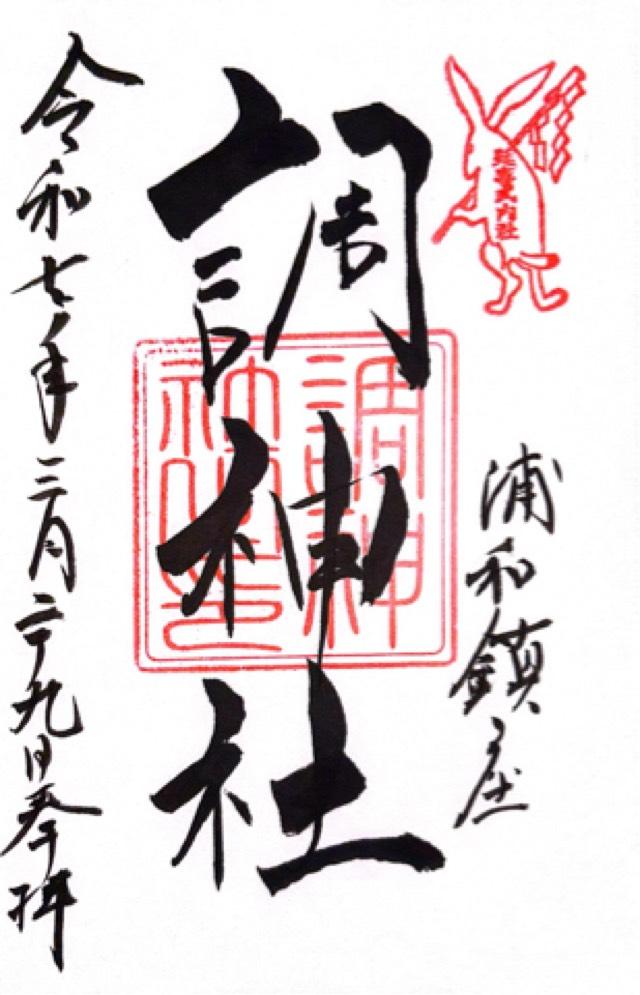 延喜式内社
浦和鎮座
調神社
調神
社之印
令和七年三月二十九日奉拝